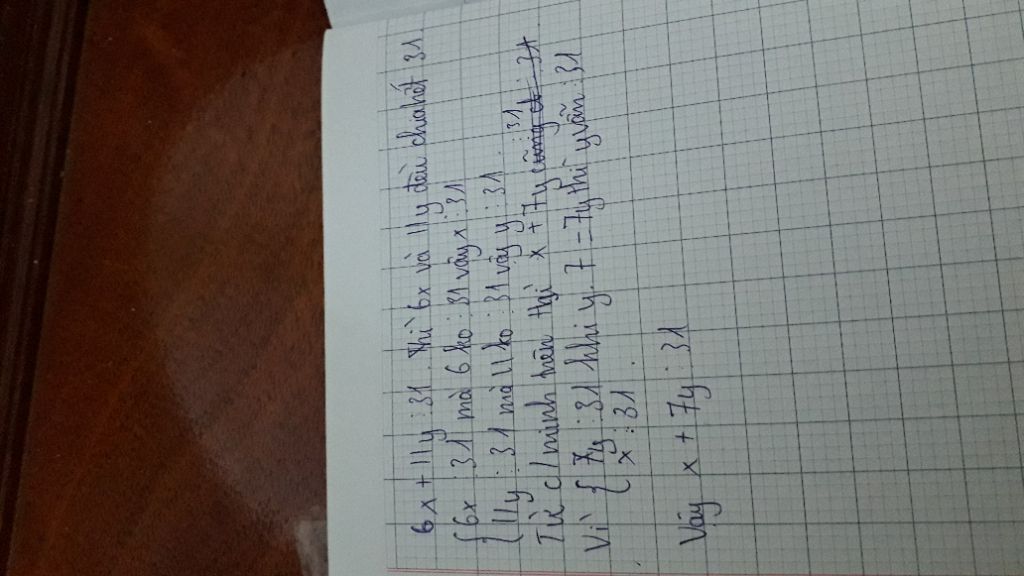 6x + 11y ⋮ 31. Thì 6x và 11y đều chia hết 31
{ 6x ⋮ 31 mà 6 ko ⋮ 31 vậy x ⋮ 31
{ 11y ⋮ 31 mà 11 ko ⋮ 31 vậy y ⋮ 31.
Từ c/minh trên thì x + 7y ⋮ 31
Vì { 7y ⋮ 31 khi y. 7 = 7y thì y vẫn ⋮ 31
x ⋮ 31
Vậy x + 7y ⋮ 31